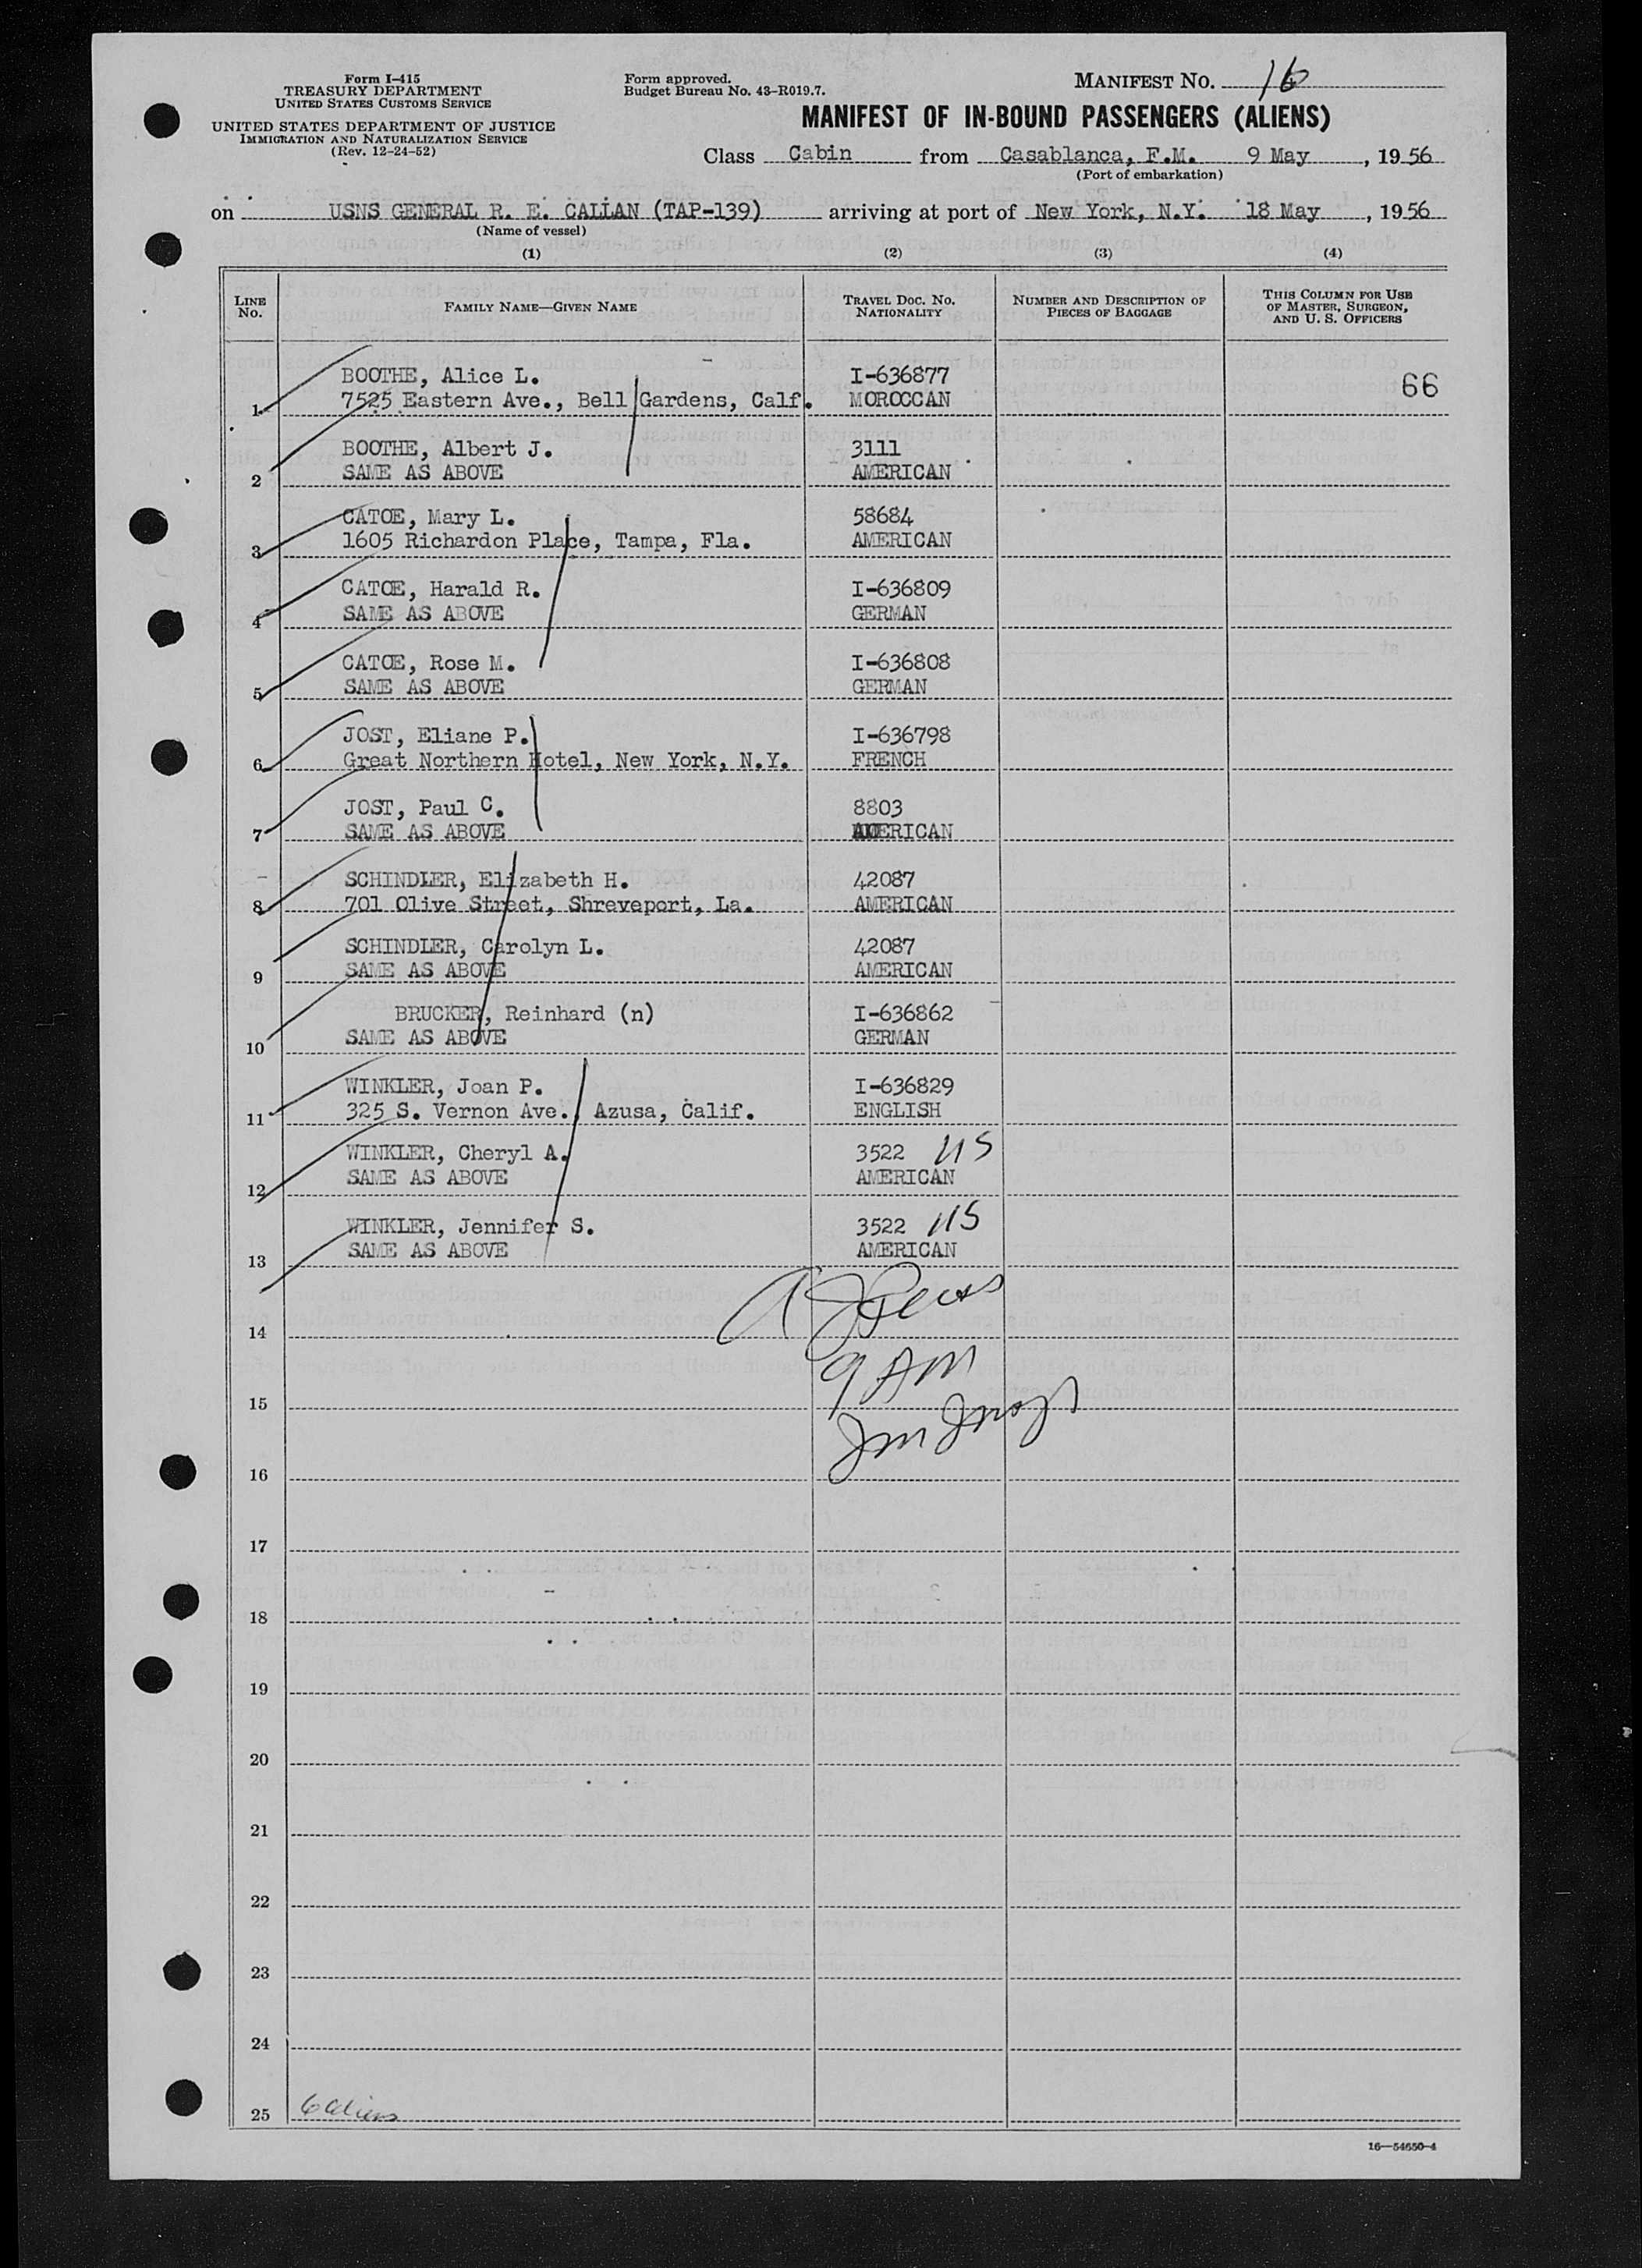 Form I-415
TREASURY DEPARTMENT
UNITED STATES CUSTOMS SERVICE
UNITED STATES DEPARTMENT OF JUSTICE
IMMIGRATION AND NATURALIZATION SERVICE
(Rev. 12-24-52)
Form approved.
Budget Bureau No. 43-R019.7.
MANIFEST NO. 16
MANIFEST OF IN-BOUND PASSENGERS (ALIENS)
Class Cabin from Casablanca, F.M. 9 May, 1956
(Port of embarkation)
on USNS GENERAL R. E. CALLAN (TAP-139) arriving at port of New York, N.Y. 18 May, 1956
(Name of vessel)
(1) (2) (3) (4)
LINE NO. FAMILY NAME—GIVEN NAME TRAVEL DOC. NO. NATIONALITY NUMBER AND DESCRIPTION OF PIECES OF BAGGAGE THIS COLUMN FOR USE OF MASTER, SURGEON, AND U. S. OFFICERS
BOOTHE, Alice L. I-636877 66
1 7525 Eastern Ave., Bell Gardens, Calf. MOROCCAN
BOOTHE, Albert J. 3111
2 SAME AS ABOVE AMERICAN
CATOE, Mary L. 58684
3 1605 Richardon Place, Tampa, Fla. AMERICAN
CATOE, Harald R. I-636809
4 SAME AS ABOVE GERMAN
CATOE, Rose M. I-636808
5 SAME AS ABOVE GERMAN
JOST, Eliane P. I-636798
6 Great Northern Hotel, New York, N.Y. FRENCH
JOST, Paul C. 8803
7 SAME AS ABOVE AMERICAN
SCHINDLER, Elizabeth H. 42087
8 701 Olive Street, Shreveport, La. AMERICAN
SCHINDLER, Carolyn L. 42087
9 SAME AS ABOVE AMERICAN
BRUCKER, Reinhard (n) I-636862
10 SAME AS ABOVE GERMAN
WINKLER, Joan P. I-636829
11 325 S. Vernon Ave., Azusa, Calif. ENGLISH
WINKLER, Cheryl A. 3522 US
12 SAME AS ABOVE AMERICAN
WINKLER, Jennifer S. 3522 US
13 SAME AS ABOVE AMERICAN
14
9 AM
15
16
17
18
19
20
21
22
23
24
25 6 aliens
16—54650-4